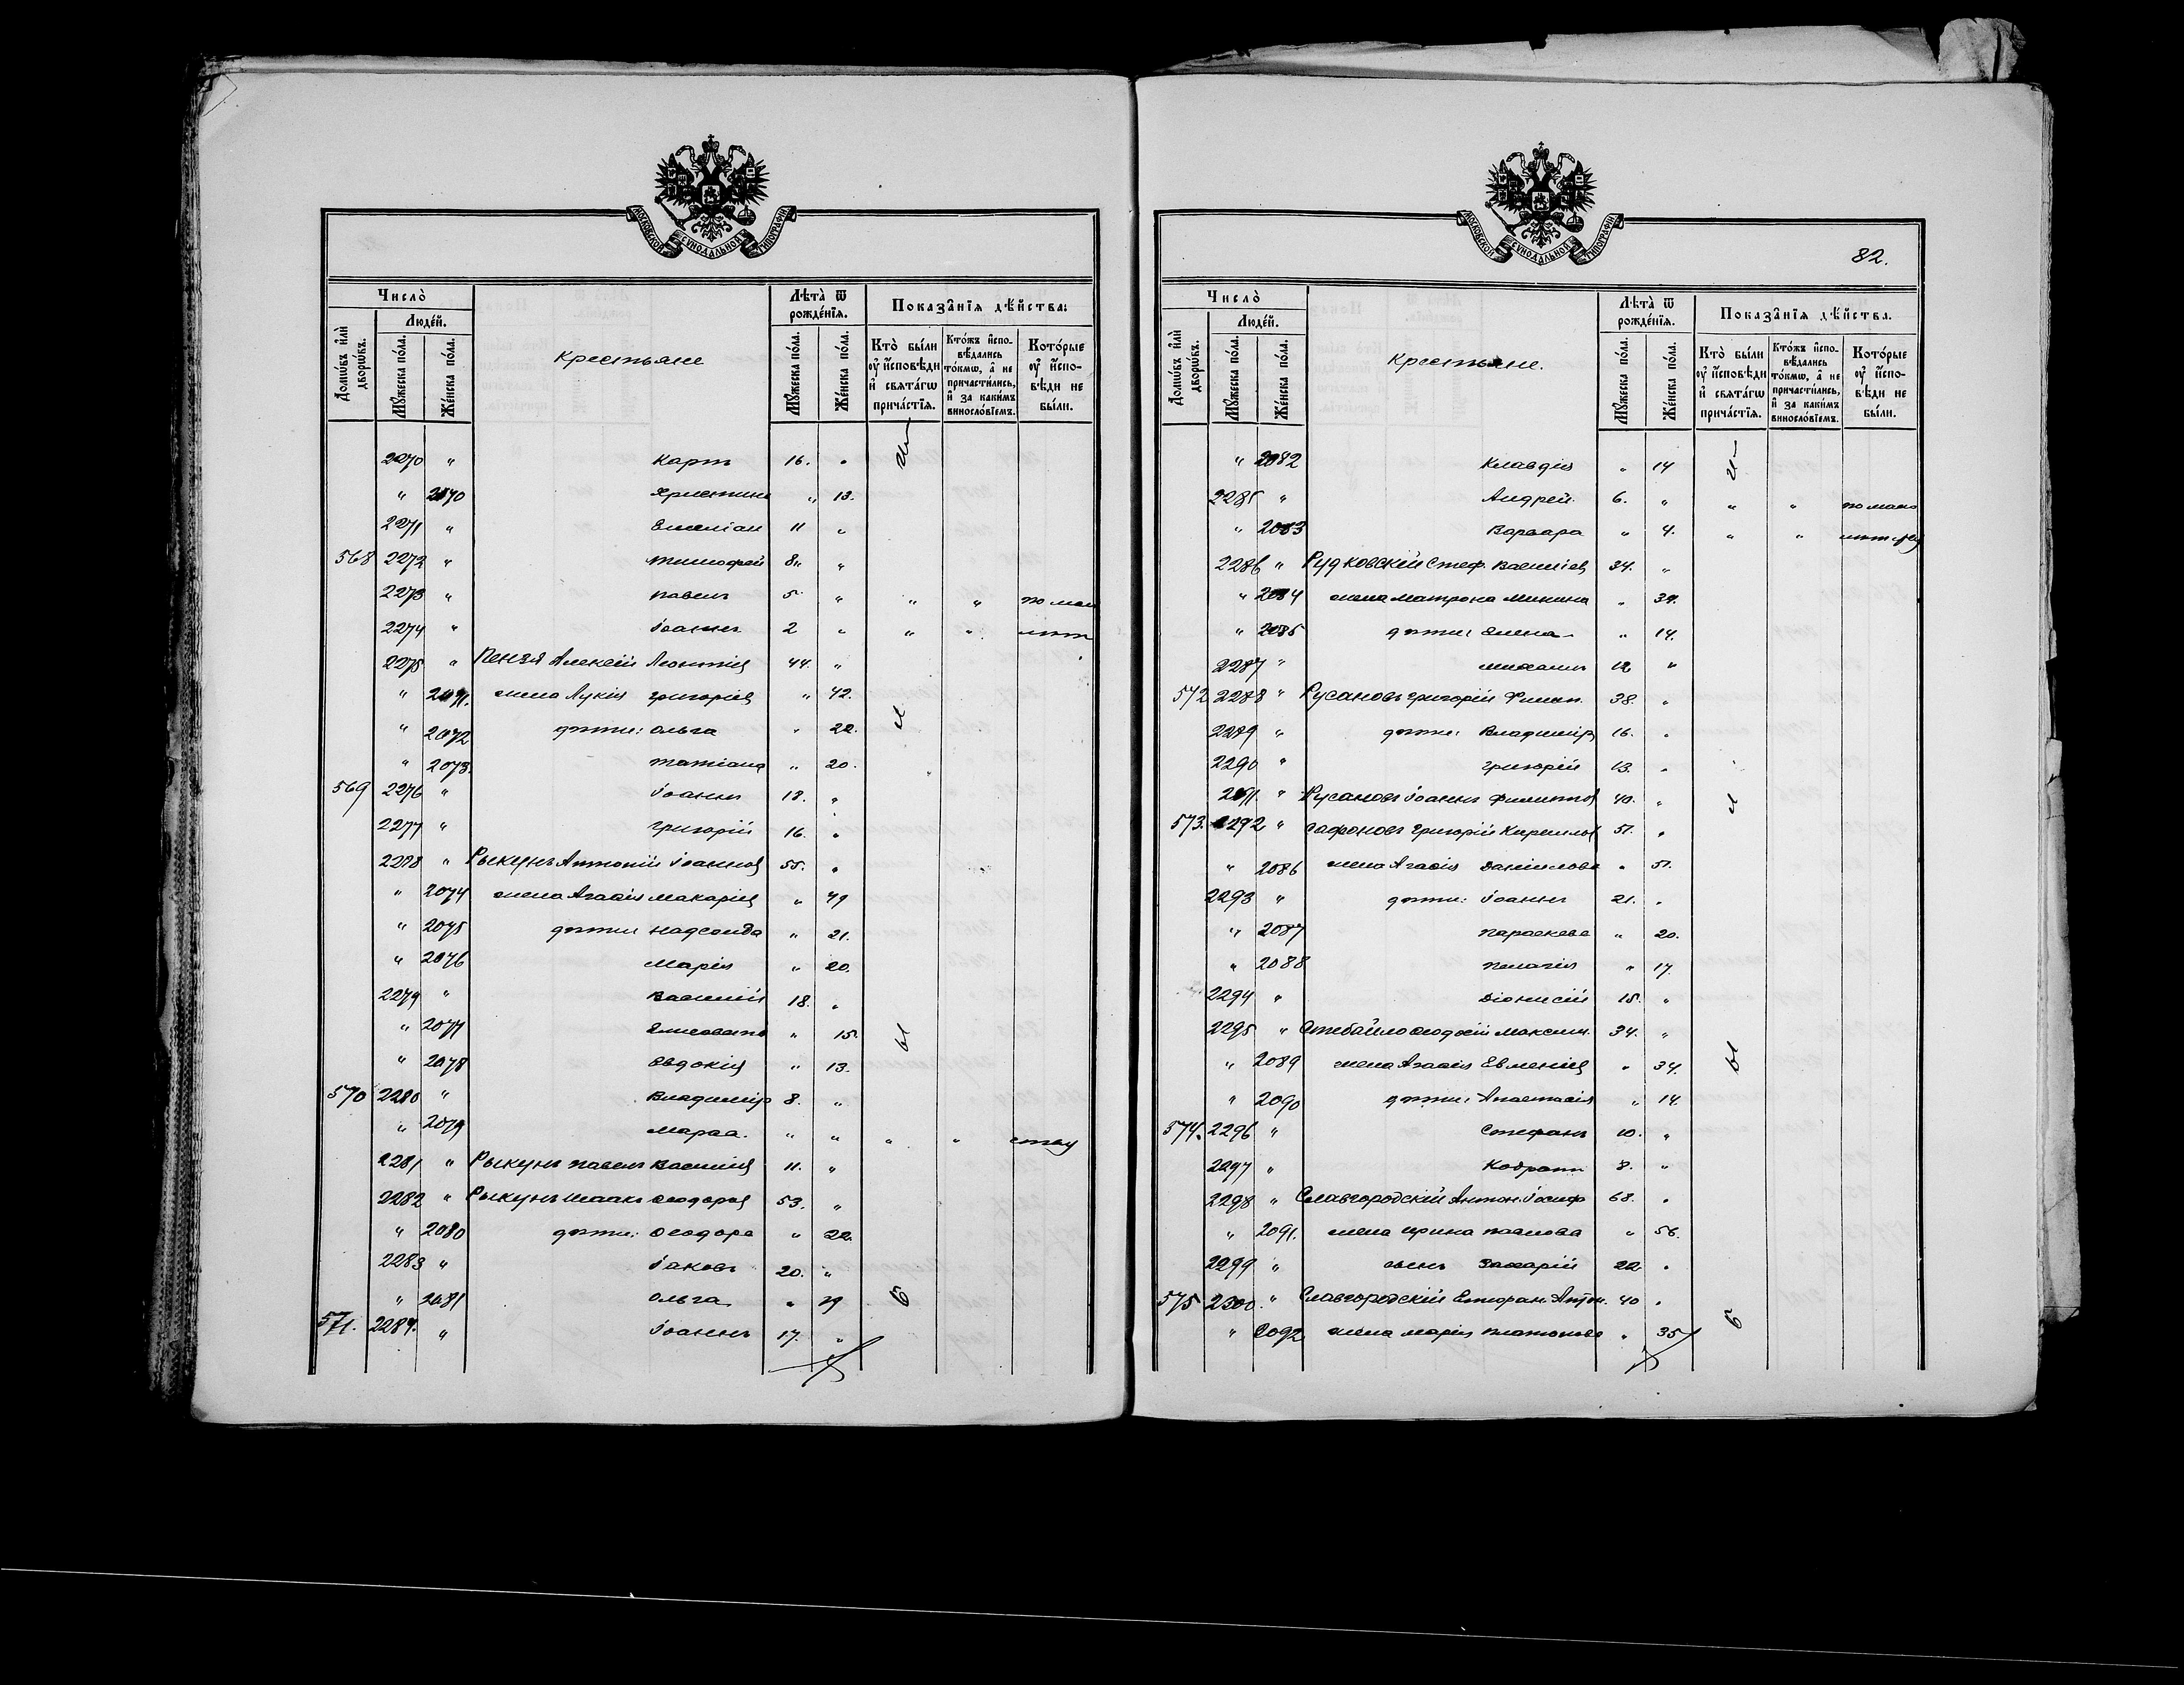 МОСКОВСКОЙ СѴНОДАЛЬНОЙ ТИПОГРАФІИ
Число̀
Людéй.
Домѡ́въ и҆лѝ дворѡ́въ.
Мꙋ́жеска по́ла.
Же́нска по́ла.
Крестьяне
Лѣта̀ ѿ рожде́нїѧ.
Мꙋ́жеска по́ла.
Же́нска по́ла.
Показа̑нїѧ дѣ́йства:
Кто̀ бы́ли ᲂу҆ и҆́сповѣди и҆ свѧта́гѡ прича́стїѧ.
Кто́жъ и҆спо-вѣ́дались то́кмѡ, а҆ не причасти́лись, и҆ за каки́мъ виносло́вїемъ.
Кото́рые ᲂу҆ и҆́спо-вѣди не бы́ли.
2270 " Карпъ 16. "
" 2070 Христина " 13.
2271 " Емеліан 11 "
568 2272 " Тимофей 8 "
2273 " Павелъ 5 " " " по мал
2274 " Іоаннъ 2 " " " лѣт
2275 " Пензя Алексій Леонтіев 44. "
" 2071. жена Лукія Григоріев " 42.
" 2072 дѣти: Ольга " 22.
" 2073. Татіана " 20.
569 2276 " Іоаннъ 18. "
2277 " Григорій 16. "
2278 " Рыкунъ Антоній Іоаннов 55. "
" 2074 жена Агафія Макаріев " 49
" 2075 дѣти Надежда " 21.
" 2076 Марія " 20.
2279 " Василій 18. "
" 2077 Елисавета " 15.
" 2078 Евдокія " 13.
570 2280 " Владиміръ 8. "
" 2079 Марфа. " " " "
2281 " Рыкунъ Павелъ Василіев 11. "
2282 " Рыкунъ Исаакъ Ѳеодоров 53. "
" 2080 дѣти: Ѳеодора " 22.
2283 " Іаковъ 20. "
" 2081 Ольга " 19
571. 2284. " Іоаннъ 17. "
и
л
ы
б
МОСКОВСКОЙ СѴНОДАЛЬНОЙ ТИПОГРАФІИ
82.
Число̀
Людéй.
Домѡ́въ и҆лѝ дворѡ́въ.
Мꙋ́жеска по́ла.
Же́нска по́ла.
Крестьяне.
Лѣта̀ ѿ рожде́нїѧ.
Мꙋ́жеска по́ла.
Же́нска по́ла.
Показа̑нїѧ дѣ́йства.
Кто̀ бы́ли ᲂу҆ и҆́сповѣди и҆ свѧта́гѡ прича́стїѧ.
Кто́жъ и҆спо-вѣ́дались то́кмѡ, а҆ не причасти́лись, и҆ за каки́мъ виносло́вїемъ.
Кото́рые ᲂу҆ и҆́спо-вѣди не бы́ли.
" 2082 Клавдія " 14
2285 " Андрей 6. " " " по мало
" 2083 Варвара " 4. " "
2286 " Рудковскій Стеф. Василіев 34. "
" 2084 жена Матрона Микина "
" 2085 дѣти: Елена " 14.
2287 " Михаилъ 12 "
572 2288 " Русановъ Григорій Филип. 38. "
2289 " дѣти: Владиміръ 16. "
2290 " Григорій 13. "
2291. " Русановъ Іоаннъ Филиппов 40. "
573. 2292 " Сафоновъ Григорій Кириллов 51. "
" 2086 жена Агафія Даніилова " 51.
2293 " дѣти: Іоаннъ 21. "
" 2087 Параскева " 20.
" 2088 Пелагія " 17.
2294 " Діонисій 15. "
2295 " Стебайло Ѳеодосій Максим. 34. "
" 2089 жена Агафія Евменіев " 34.
" 2090 дѣти: Анастасія " 14.
574. 2296 " Стефанъ 10. "
2297 " Кодратъ 8. "
2298 " Славгородскій Антон. Іосиф 68. "
" 2091. жена Ирина Павлова " 56.
2299 " сынъ Захарій 22 "
575 2300. " Славгородскій Стефан. Антон. 40 "
" 2092 жена Марія Платонова " 35
и
л
ы
б